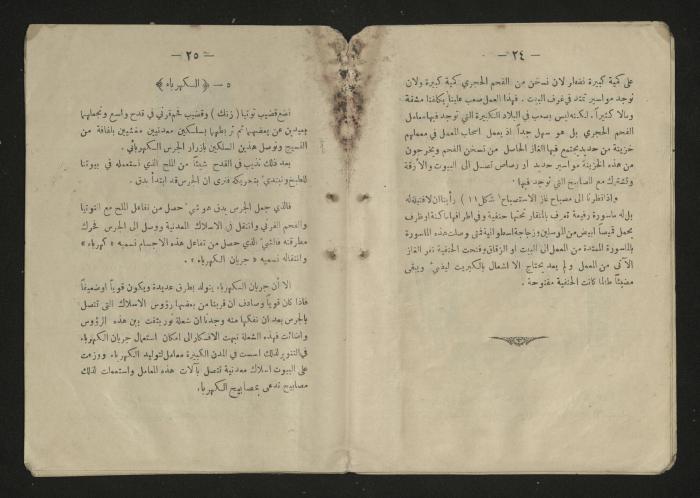 — ٢٤ —
على كمية كبيرة نضطر لان نسخن من الفحم الحجري كمية كبيرة ولان
نوجد مواسير تمتد في غرف البيت . فهذا العمل صعب علينا يكلفنا مشقة
ومالا كثيراً . لكنه ليس بصعب في البلاد الكبيرة التي توجد فيها معامل
الفحم الحجري بل هو سهل جداً اذ يعمل اصحاب المعمل في معملهم
خزينة من حديد يجتمع فيها الغاز الحاصل من تسخن الفحم ويخرجون
من هذه الخزينة مواسير حديد أو رصاص تصل الى البيوت والأزقة
وتشترك مع المصابيح التي توجد فيها .
واذا نظرنا الى مصباح غاز الاستصباح ( شكل ١١ ) رأيناان لافتيلة له
بل له ماسورة رفيعة تعرف بالمنقار تحتها حنفية وفي اطرافها ماسكة او ظرف
يحمل قميصاً ابيض من الموسلين وزجاجة اسطوانية فمتى وصلت هذه الماسورة
بالماسورة الممتدة من المعمل الى البيت او الزقاق وفتحت الحنفية نفر الغاز
الآتي من المعمل ولم يعد يحتاج الا اشعال بالكبريت ليضيء ويبقى
مضيئاً طالما كانت الحنفية مفتوحة .
— ٢٥ —
٥ – ﴿ الكهرباء ﴾
نضع قضيب توتيا ( زنك ) وقضيب فحم فرني في قدح واسع ونجعلهما
بعيدين عن بعضهما ثم نربطهما بسلكين معدنيين مغشيين بلفافة من
النسيج ونوصل هذين السلكين بازرار الجرس الكهربائي .
بعد ذلك نذيب في القدح شيئاً من الملح الذي نستعمله في بيوتنا
للطبخ ونبتدئ بتحريكه فنرى ان الجرس قد ابتدأ يدق .
فالذي جعل الجرس يدق هو شيء حصل من تفاعل الملح مع التوتيا
والفحم الفرني وانتقل في الاسلاك المعدنية ووصل الى الجرس فحرك
مطرقته فالشيء الذي حصل من تفاعل هذه الاجسام نسميه « كهرباء »
وانتقاله نسميه « جريان الكهرباء » .
الا أن جريان الكهرباء يتولد بطرق عديدة ويكون قوياً او ضعيفاً
فاذا كان قوياً وصادف ان قربنا من بعضها رؤوس الاسلاك التي تتصل
بالجرس بعد ان نفكها منه وجدنا ان شعلة نور بثقت بين هذه الرؤوس
واضائت فهذه الشعلة نبهت الافكار الى امكان استعمال جريان الكهرباء
في التنوير لذلك اسست في المدن الكبيرة معامل لتوليد الكهرباء ووزعت
على البيوت اسلاك معدنية تتصل بآلات هذه المعامل واستعملت لذلك
مصابيح تدعى بمصابيح الكهرباء